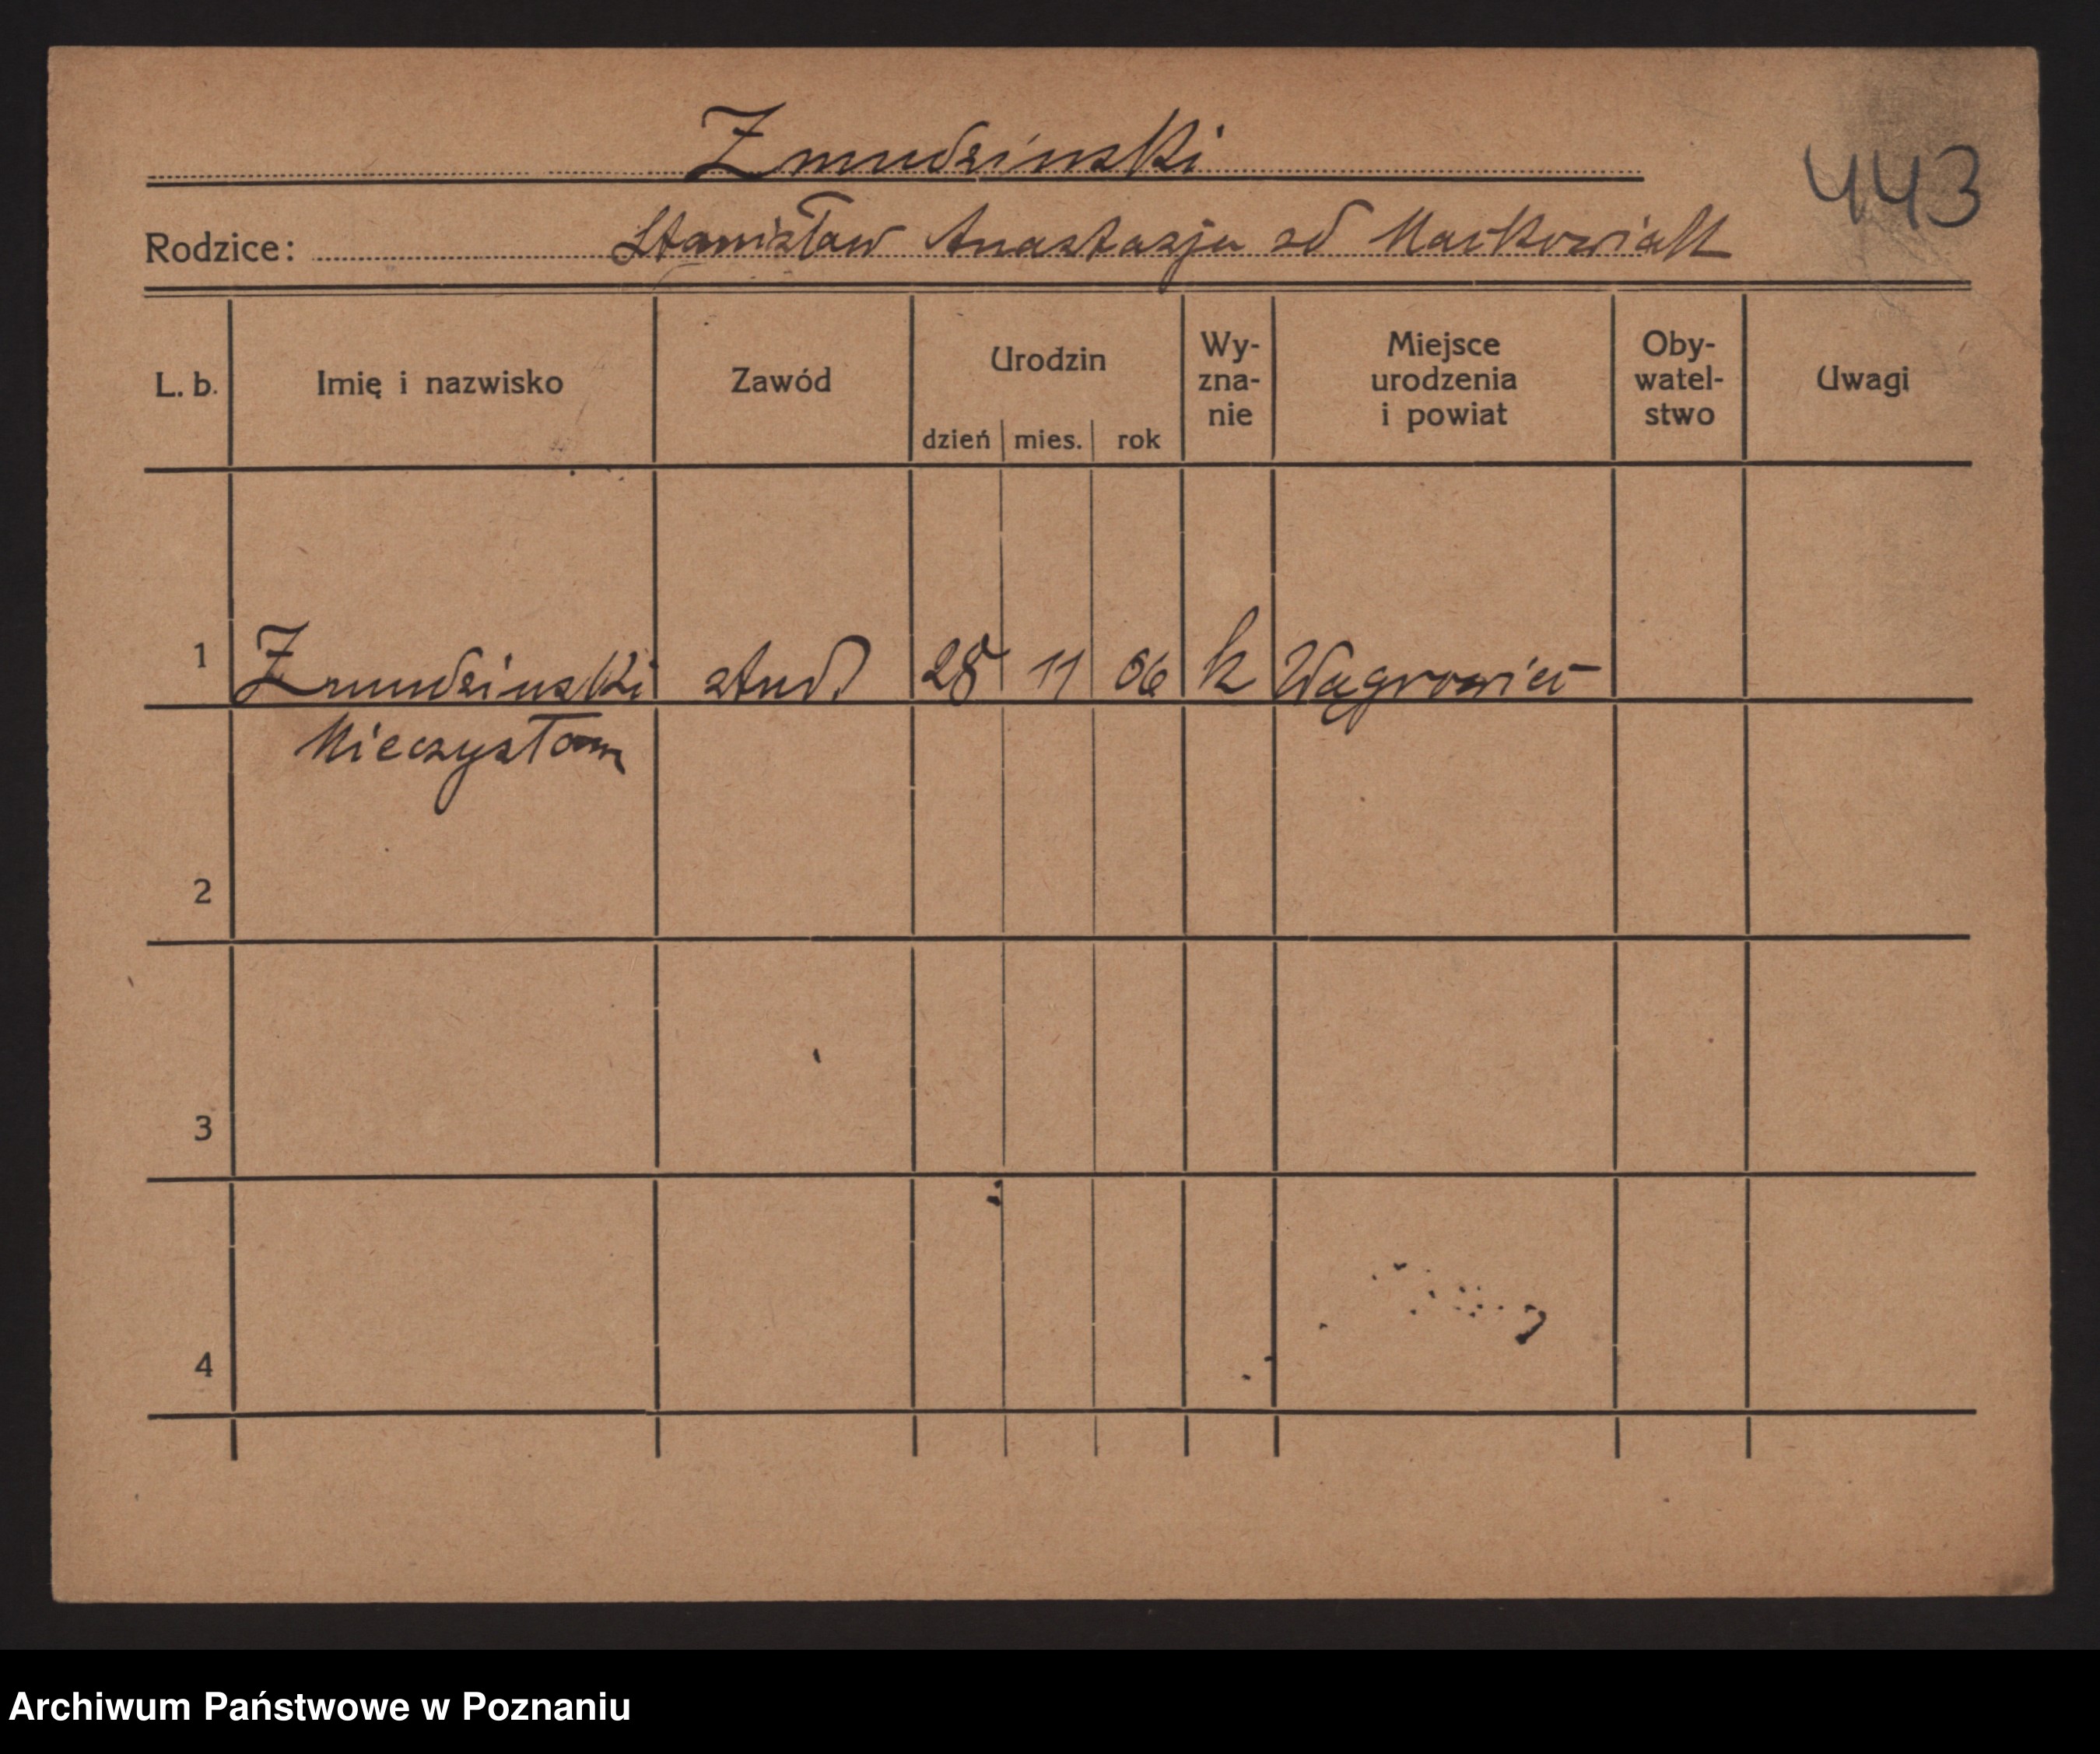 Zmudzinski
443
Rodzice: Stanisław Anastazja od Markowiak
L. b. Imię i nazwisko Zawód Urodzin dzień mies. rok Wy-zna-nie Miejsce urodzenia i powiat Oby-watel-stwo Uwagi
1 Zmudzinski stud. 28 11 06 k Wągrowiec
Mieczysław
2
3
4
Archiwum Państwowe w Poznaniu